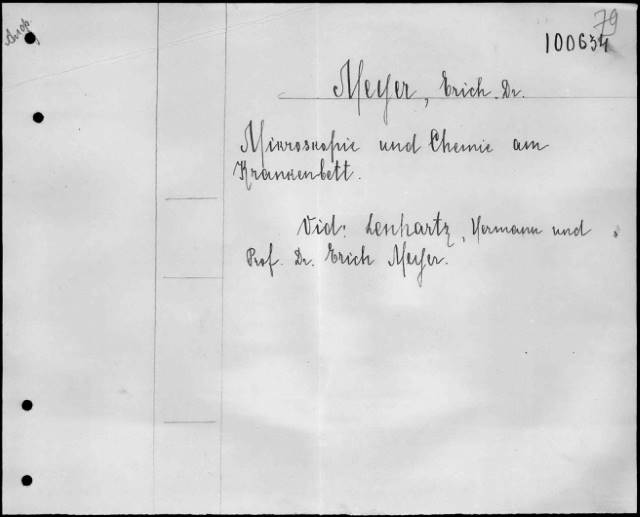 79
100634
Meyer, Erich. Dr.
Mikroskopie und Chemie am
Krankenbett.
Vid: Lenhartz, Hermann und
Prof. Dr. Erich Meyer.